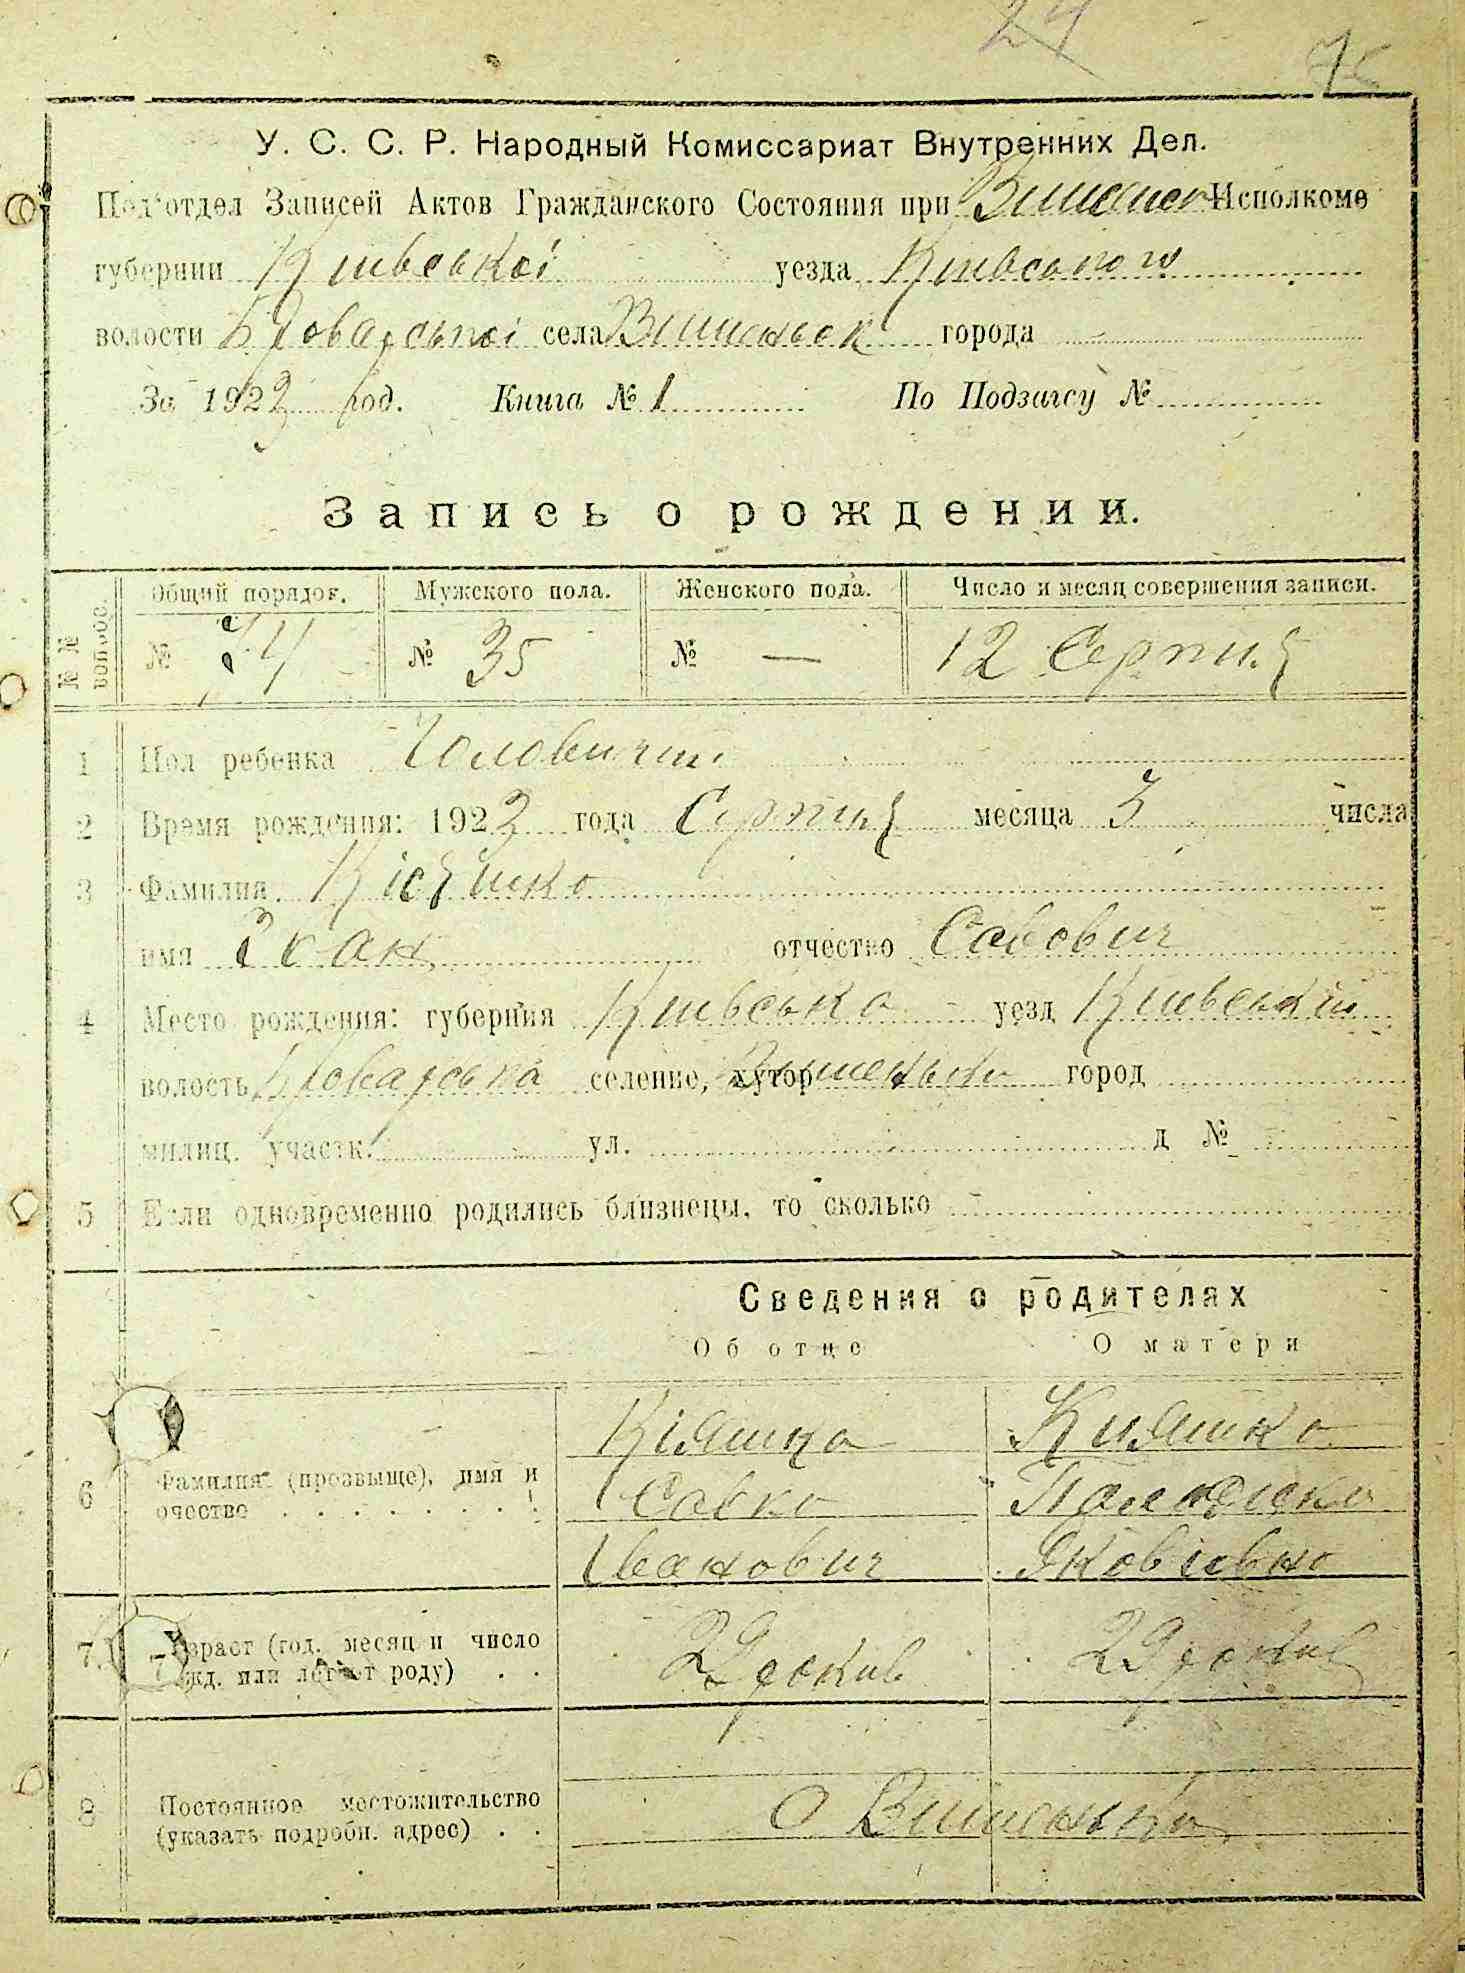 24
75
У. С. С. Р. Народный Комиссариат Внутренних Дел.
Под'отдел Записей Актов Гражданского Состояния при Вишенсь Исполкоме
губернии Київської уезда Київського
волости Броварської села Вишеньок города
За 1923 год. Книга № 1 По Подзагсу №
Запись о рождении.
№№ вопрос. Общий порядок. Мужского пола. Женского пола. Число и месяц совершения записи.
№ 74 № 35 № — 12 Серпня
1 Пол ребенка Чоловичий
2 Время рождения: 1923 года Серпня месяца 3 числа
3 Фамилия Кіяшко
имя Іван отчество Савович
4 Место рождения: губерния Київська уезд Київський
волость Броварська селение, хутор Вишеньки город
милиц. участк. ул. д №
5 Если одновременно родились близнецы, то сколько
Сведения о родителях
Об отце О матери
Кіяшко Кияшко
6 Фамилия (прозвыще), имя и Савко
очество Іванович Яковлівна
7 Возраст (год, месяц и число 29 років 29 років
рожд. или лет от роду)
8 Постоянное местожительство с Вишеньки
(указать подробн. адрес)